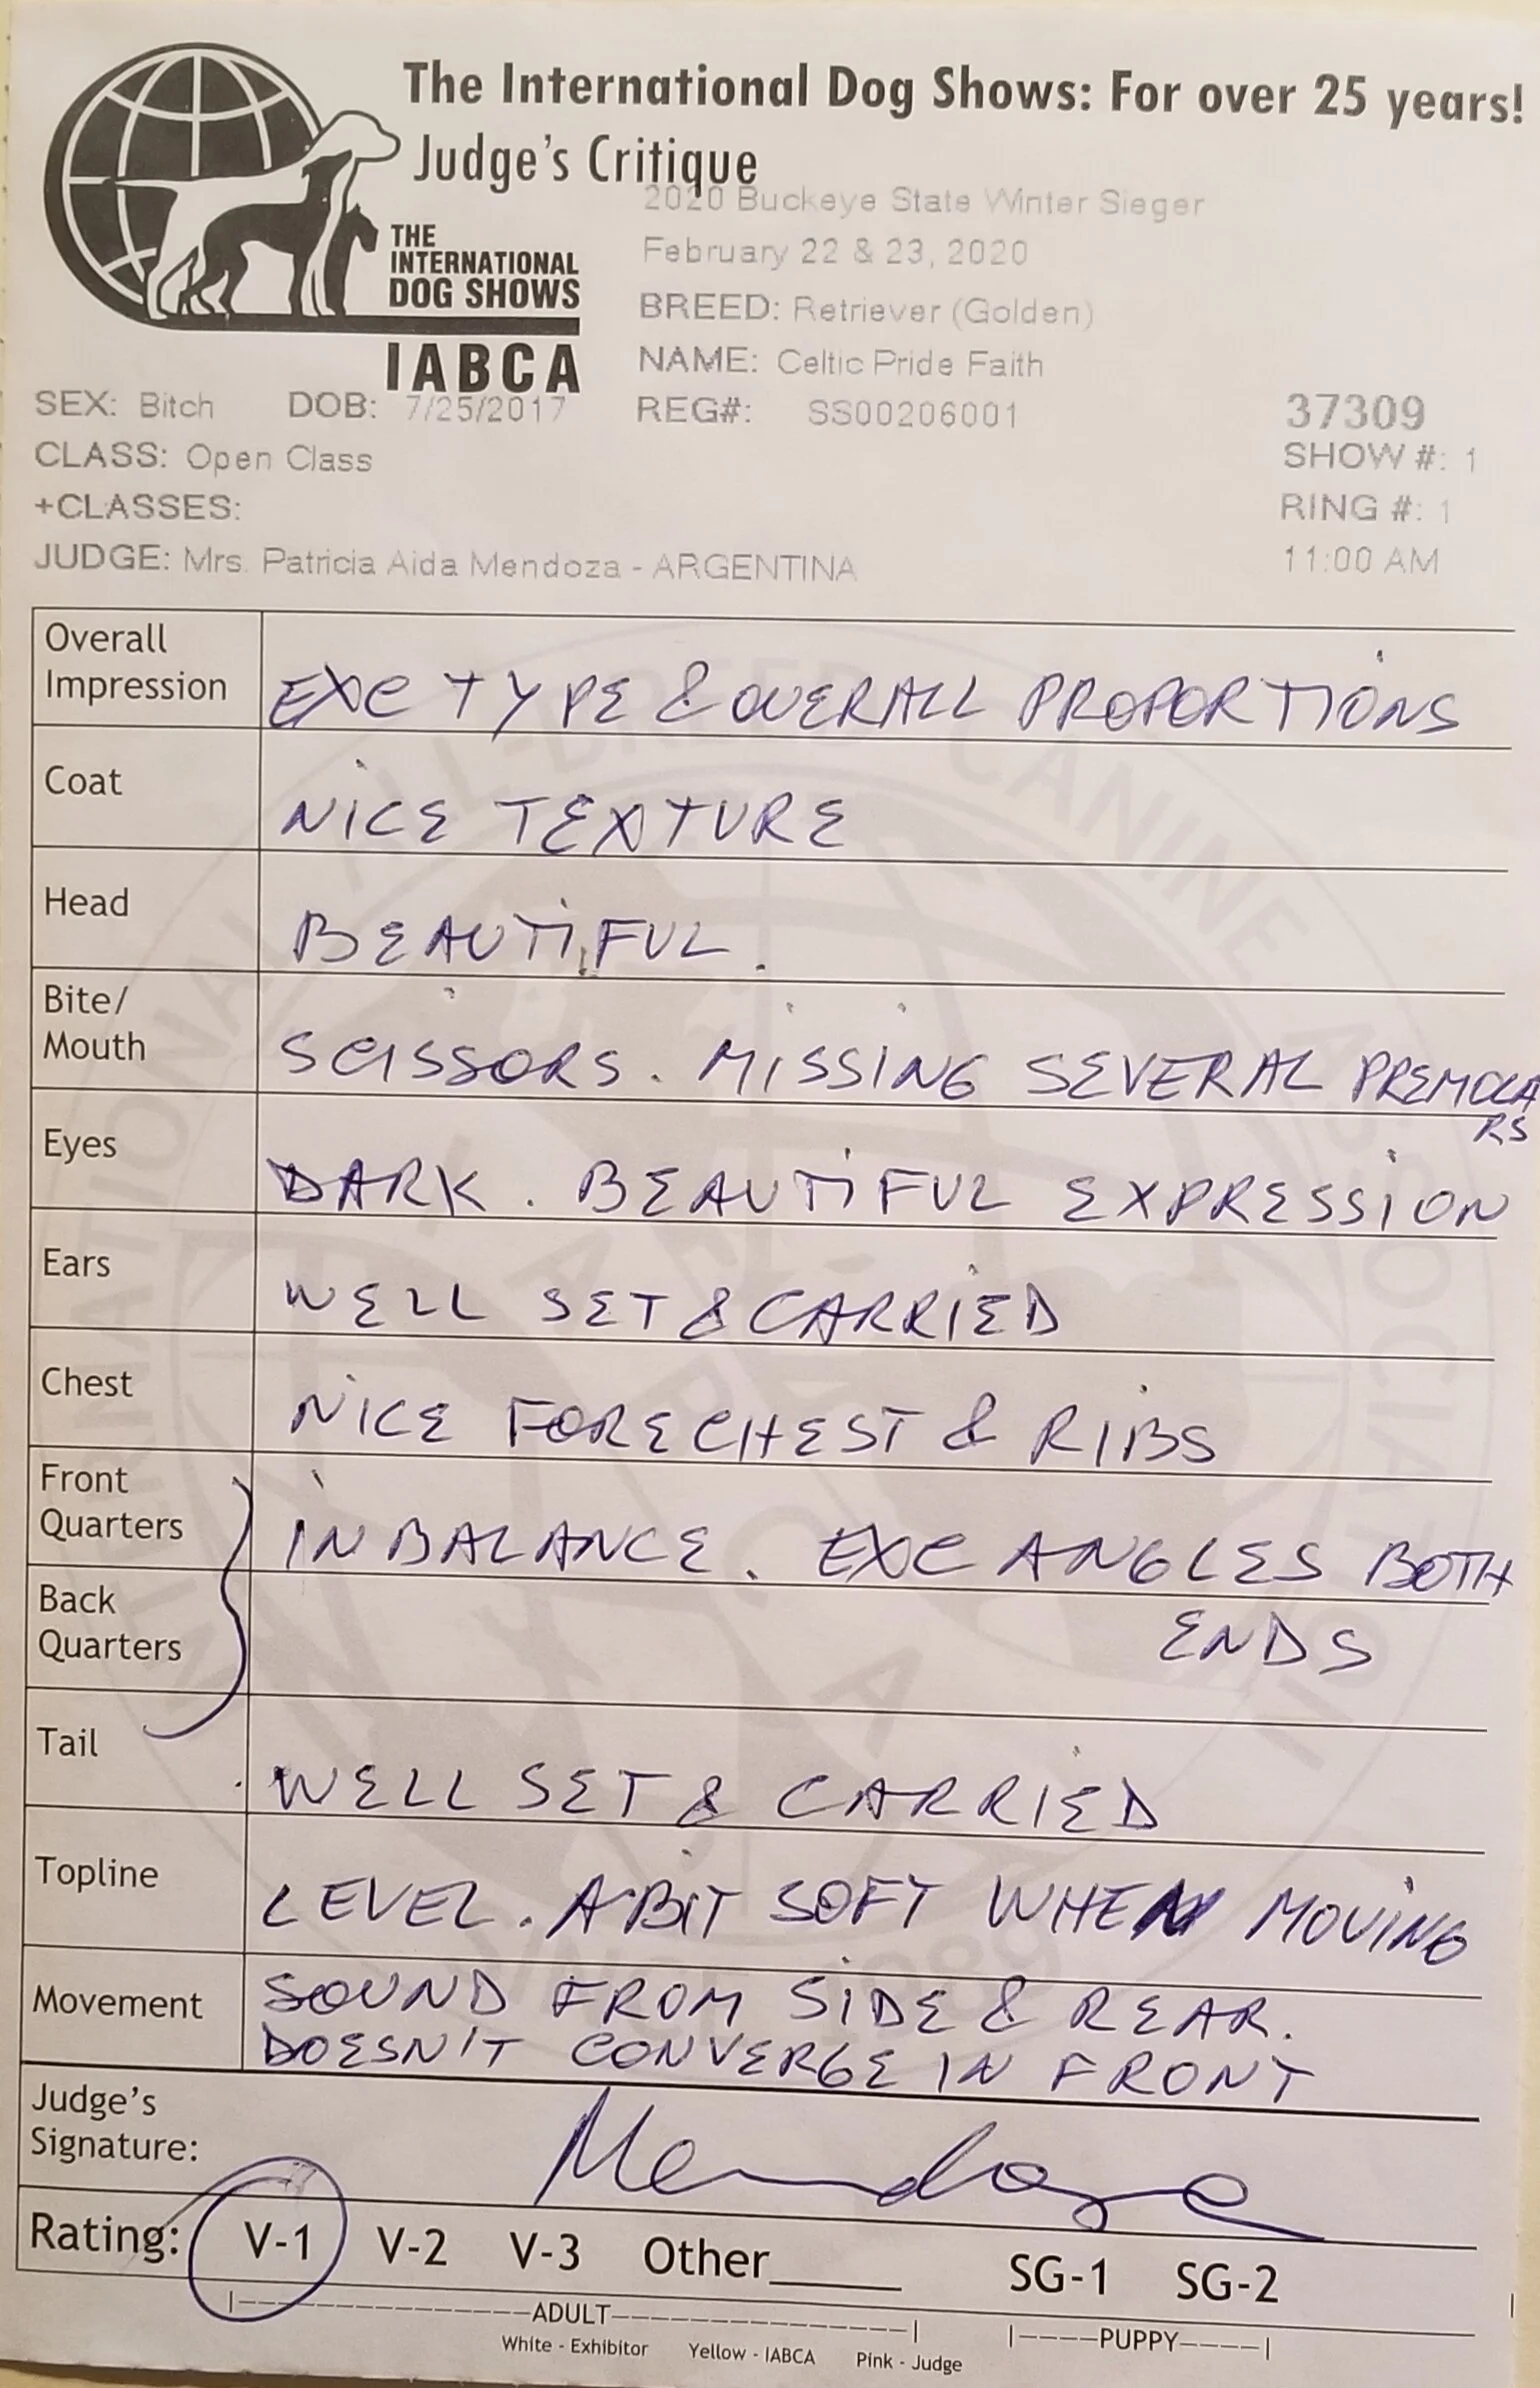 The International Dog Shows: For over 25 years!
Judge's Critique
2020 Buckeye State Winter Sieger
February 22 & 23, 2020
THE
INTERNATIONAL
DOG SHOWS
IABCA
BREED: Retriever (Golden)
NAME: Celtic Pride Faith
SEX: Bitch DOB: 7/25/2017 REG#: SS00206001 37309
CLASS: Open Class SHOW #: 1
+CLASSES: RING #: 1
JUDGE: Mrs. Patricia Aida Mendoza - ARGENTINA 11:00 AM
Overall
Impression EXC TYPE & OVERALL PROPORTIONS
Coat NICE TEXTURE
Head BEAUTIFUL.
Bite/
Mouth SCISSORS. MISSING SEVERAL PREMOLA
RS
Eyes DARK. BEAUTIFUL EXPRESSION
Ears WELL SET & CARRIED
Chest NICE FORECHEST & RIBS
Front
Quarters IN BALANCE. EXC ANGLES BOTH
Back
Quarters ENDS
Tail WELL SET & CARRIED
Topline LEVEL. A BIT SOFT WHEN MOVING
Movement SOUND FROM SIDE & REAR.
DOESN'T CONVERGE IN FRONT
Judge's
Signature: Mendoza
Rating: V-1 V-2 V-3 Other____ SG-1 SG-2
|----ADULT----| |----PUPPY----|
White - Exhibitor Yellow - IABCA Pink - Judge
INTERNATIONAL ALL-BREED CANINE ASSOCIATION